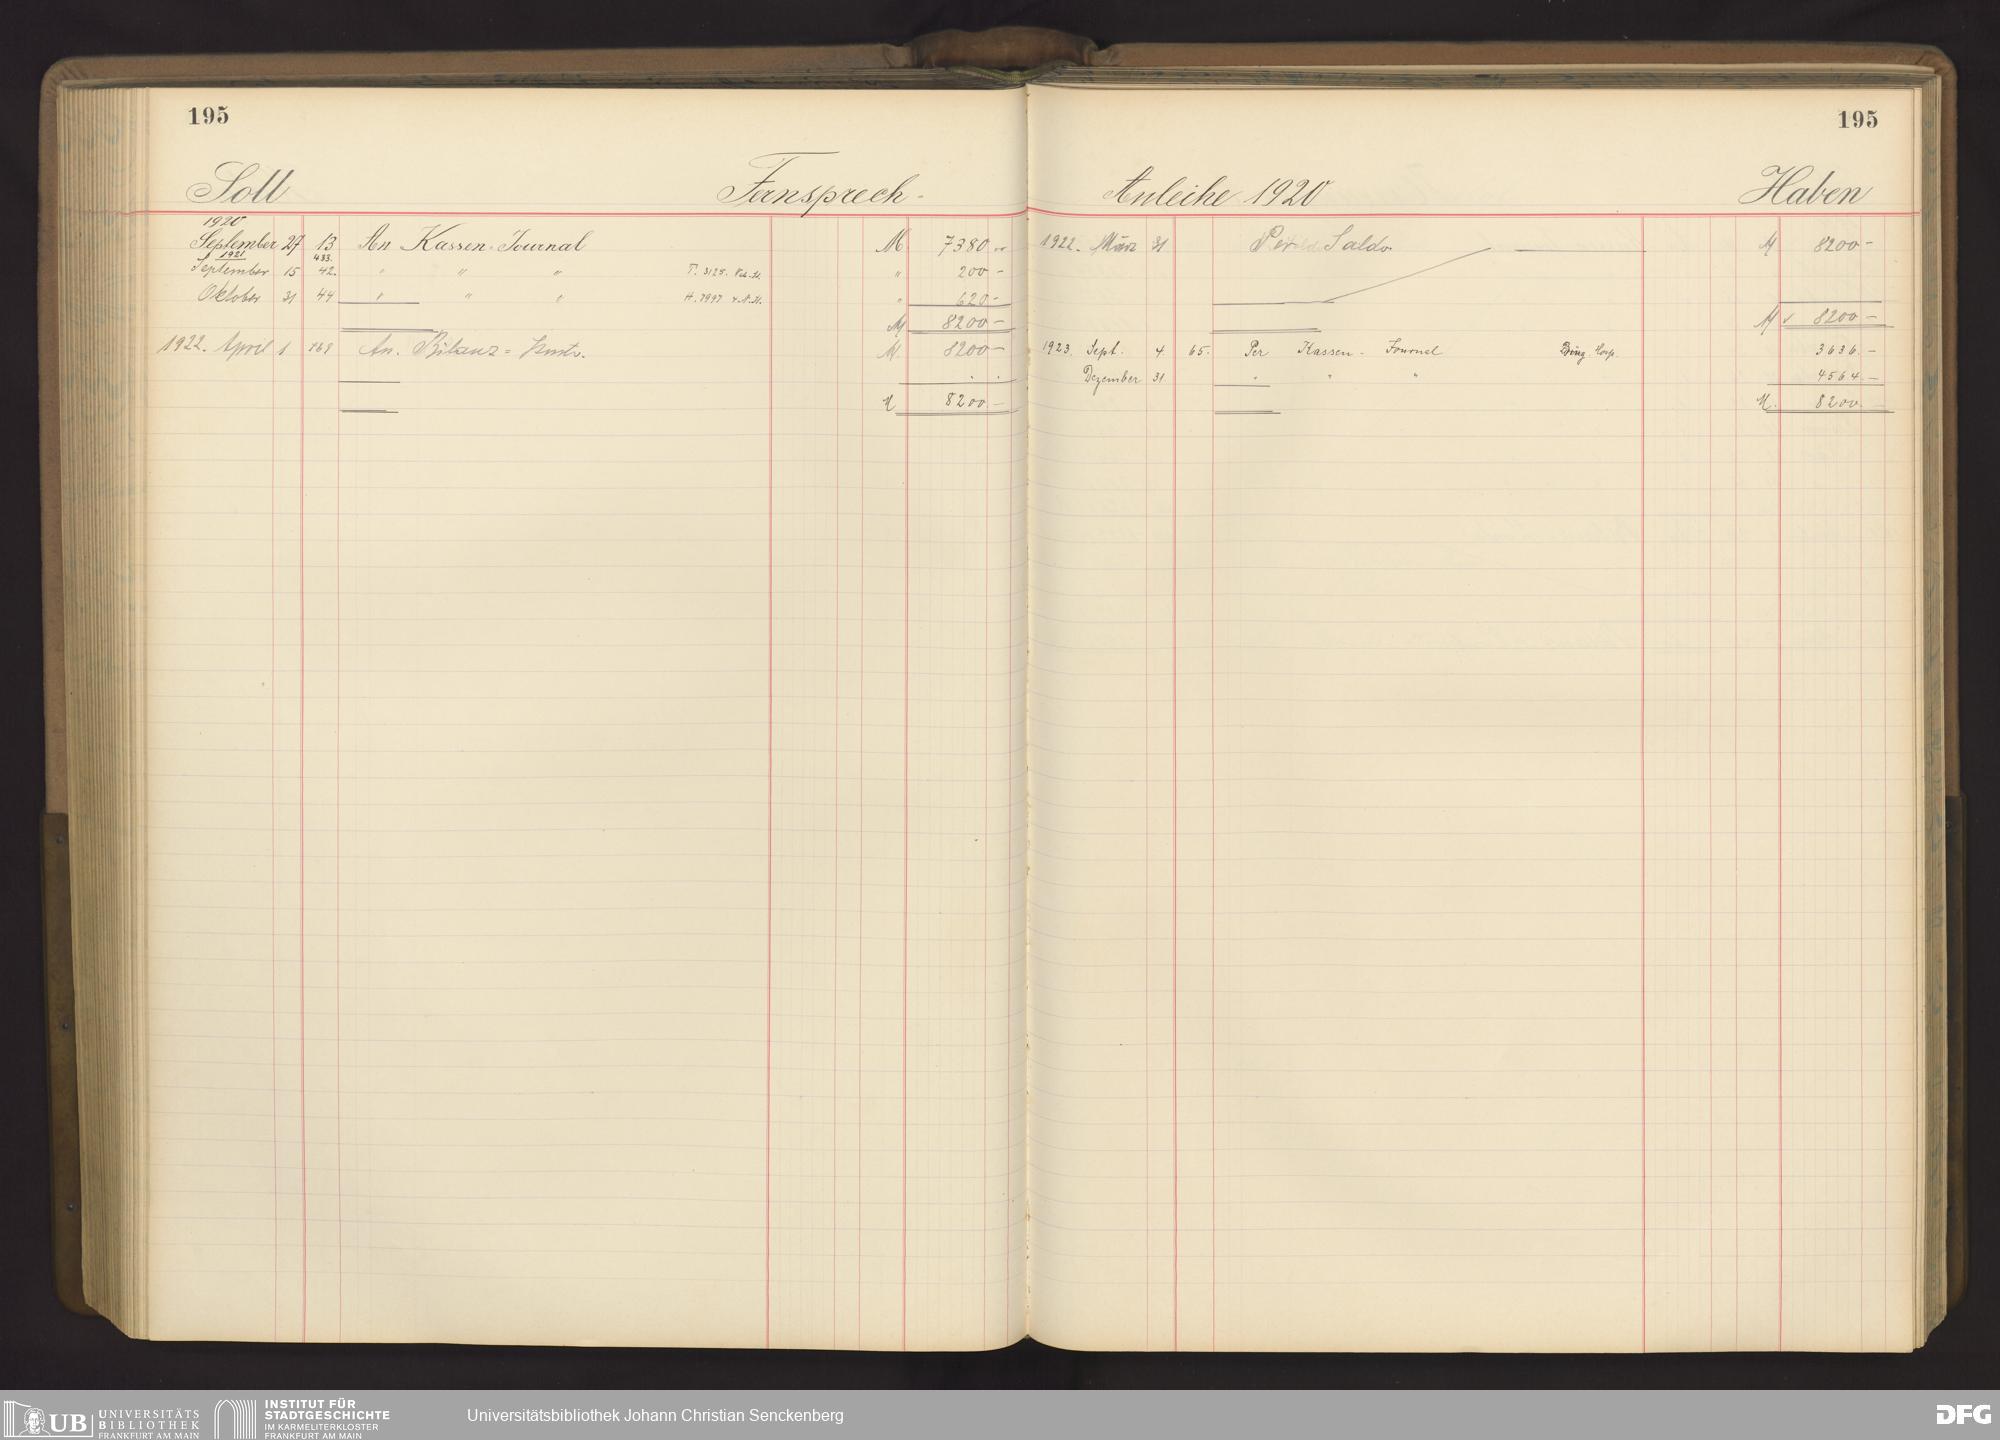 195
Soll Fernsprech-
1920
September 27 13 An Kassen-Journal M 7380
1921 433.
September 15 42. " " " T. 3125. " 200 -
Oktober 31 44 " " " H. 7997 " 620 -
M 8200 -
1922. April 1 An. Bilanz = Konto. M. 8200 -
M 8200.-
195
Anleihe 1920 Haben
1922. März 31 Per Saldo M 8200 -
M 8200 -
1923. Sept. 4. 65. Per Kassen-Journal 3636.-
Dezember 31 " " " 4564.-
M. 8200.-
UB UNIVERSITÄTS
BIBLIOTHEK
FRANKFURT AM MAIN
INSTITUT FÜR
STADTGESCHICHTE
IM KARMELITERKLOSTER
FRANKFURT AM MAIN
Universitätsbibliothek Johann Christian Senckenberg
DFG